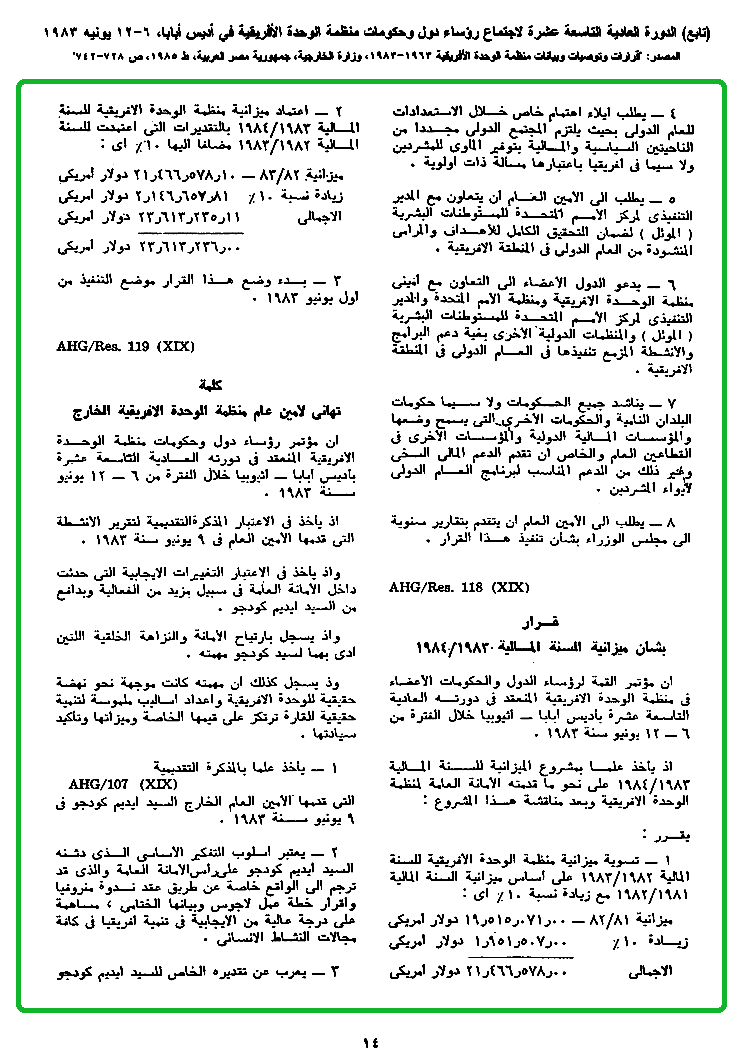 (تابع) الدورة العادية التاسعة عشرة لاجتماع رؤساء دول وحكومات منظمة الوحدة الأفريقية في أديس أبابا، ٦-١٢ يونيه ١٩٨٣
المصدر: "قرارات وتوصيات وبيانات منظمة الوحدة الأفريقية ١٩٦٣-١٩٨٣، وزارة الخارجية، جمهورية مصر العربية، ط ١٩٨٥، ص ٧٢٨-٧٤٢"
٤ — يطلب ايلاء اهتمام خاص خلال الاستعدادات
للعام الدولى بحيث يلتزم المجتمع الدولى مجددا من
الناحيتين السياسية والمالية بتوفير المأوى للمشردين
ولا سيما فى افريقيا باعتبارها مسألة ذات اولوية .
٥ — يطلب الى الأمين العام أن يتعاون مع المدير
التنفيذى لمركز الأمم المتحدة للمستوطنات البشرية
( الموئل ) لضمان التحقيق الكامل للأهداف والمرامى
المنشودة من العام الدولى فى المنطقة الافريقية .
٦ — يدعو الدول الأعضاء الى التعاون مع أمينى
منظمة الوحدة الافريقية ومنظمة الأمم المتحدة والمدير
التنفيذى لمركز الأمم المتحدة للمستوطنات البشرية
( الموئل ) والمنظمات الدولية الأخرى بغية دعم البرامج
والأنشطة المزمع تنفيذها فى العام الدولى فى المنطقة
الافريقية .
٧ — يناشد جميع الحكومات ولا سيما حكومات
البلدان النامية والحكومات الأخرى التى يسمح وضعها
والمؤسسات المالية الدولية والمؤسسات الأخرى فى
القطاعين العام والخاص أن تقدم الدعم المالى السخى
وغير ذلك من الدعم المناسب لبرنامج العام الدولى
لايواء المشردين .
٨ — يطلب الى الأمين العام أن يتقدم بتقارير سنوية
الى مجلس الوزراء بشأن تنفيذ هذا القرار .
AHG/Res. 118 (XIX)
قرار
بشأن ميزانية السنة المالية ١٩٨٤/١٩٨٣
ان مؤتمر القمة لرؤساء الدول والحكومات الأعضاء
فى منظمة الوحدة الافريقية المنعقد فى دورته العادية
التاسعة عشرة بأديس أبابا — اثيوبيا خلال الفترة من
٦ — ١٢ يونيو سنة ١٩٨٣ .
اذ يأخذ علما بمشروع الميزانية للسنة المالية
١٩٨٤/١٩٨٣ على نحو ما قدمته الأمانة العامة لمنظمة
الوحدة الافريقية وبعد مناقشة هذا المشروع :
يقرر :
١ — تسوية ميزانية منظمة الوحدة الافريقية للسنة
المالية ١٩٨٣/١٩٨٢ على أساس ميزانية السنة المالية
١٩٨٢/١٩٨١ مع زيادة نسبة ١٠٪ اى :
ميزانية ٨٢/٨١ — ١٩ر٥١٥ر٠٧١ر٠٠ دولار أمريكى
زيادة ١٠٪ ١ر٩٥١ر٥٠٧ر٠٠ دولار أمريكى
الاجمالى ٢١ر٤٦٦ر٥٧٨ر٠٠ دولار أمريكى
٢ — اعتماد ميزانية منظمة الوحدة الافريقية للسنة
المالية ١٩٨٤/١٩٨٣ بالتقديرات التى اعتمدت للسنة
المالية ١٩٨٣/١٩٨٢ مضافا اليها ١٠٪ اى :
ميزانية ٨٣/٨٢ — ٢١ر٤٦٦ر٥٧٨ر١٠ دولار أمريكى
زيادة نسبة ١٠٪ ٢ر١٤٦ر٦٥٧ر٨١ دولار أمريكى
الاجمالى ٢٣ر٦١٣ر٢٣٥ر١١ دولار أمريكى
٢٣ر٦١٣ر٢٣٦ر٠٠ دولار أمريكى
٣ — بدء وضع هذا القرار موضع التنفيذ من
اول يونيو ١٩٨٣ .
AHG/Res. 119 (XIX)
كلمة
تهانى لأمين عام منظمة الوحدة الافريقية الخارج
ان مؤتمر رؤساء دول وحكومات منظمة الوحدة
الافريقية المنعقد فى دورته العادية التاسعة عشرة
بأديس أبابا — اثيوبيا خلال الفترة من ٦ — ١٢ يونيو
سنة ١٩٨٣ .
اذ يأخذ فى الاعتبار المذكرة التقديمية لتقرير الأنشطة
التى قدمها الأمين العام فى ٩ يونيو سنة ١٩٨٣ .
واذ يأخذ فى الاعتبار التغييرات الايجابية التى حدثت
داخل الأمانة العامة فى سبيل مزيد من الفعالية وبدافع
من السيد ايديم كودجو .
واذ يسجل بارتياح الأمانة والنزاهة الخلقية اللتين
ادى بهما لسيد كودجو مهمته .
وذ يسجل كذلك ان مهمته كانت موجهة نحو نهضة
حقيقية للوحدة الافريقية واعداد أساليب ملموسة لتنمية
حقيقية للقارة ترتكز على قيمها الخاصة وميزاتها وتأكيد
سيادتها .
١ — يأخذ علما بالمذكرة التقديمية
AHG/107 (XIX)
التى قدمها الأمين العام الخارج السيد ايديم كودجو فى
٩ يونيو سنة ١٩٨٣ .
٢ — يعتبر أسلوب التفكير الأساسى الذى دشنه
السيد ايديم كودجو على رأس الأمانة العامة والذى قد
ترجم الى الواقع خاصة عن طريق عقد ندوة منروفيا
واقرار خطة عمل لاجوس وبيانها الختامى ، مساهمة
على درجة عالية من الايجابية فى تنمية افريقيا فى كافة
مجالات النشاط الانسانى .
٣ — يعرب عن تقديره الخاص للسيد ايديم كودجو
١٤